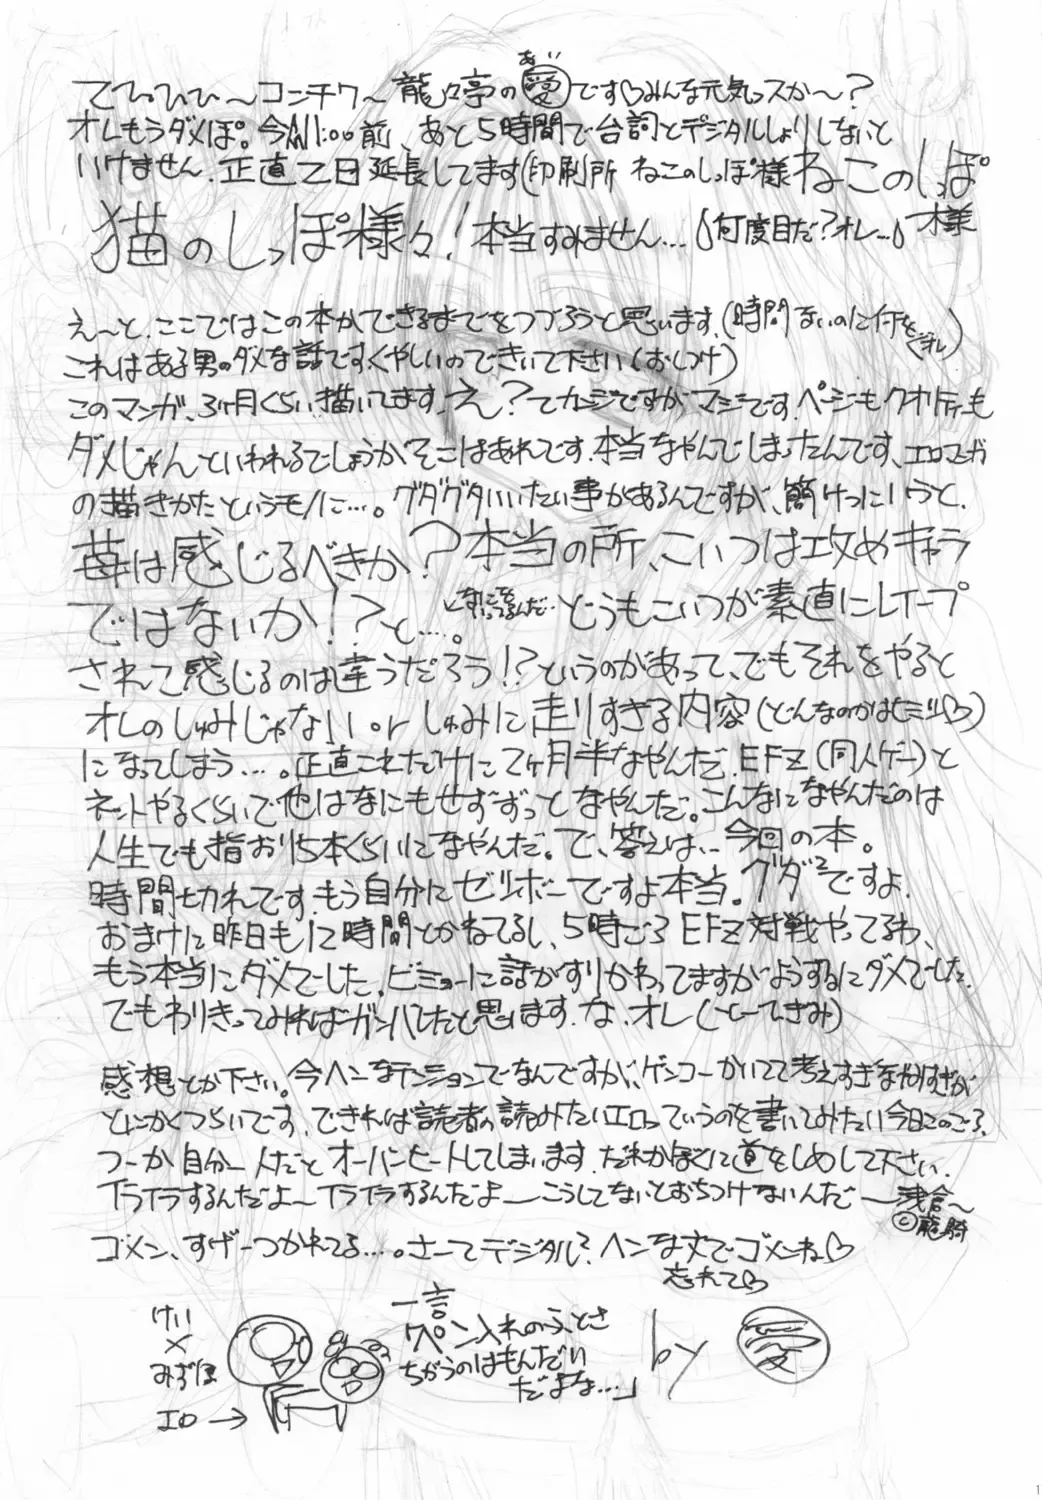 てひひひ〜コンチワ〜龍々亭の愛ですみんな元気っスか〜？
あい
オレもうダメぽ。今AM1:00前、あと5時間で台詞とデジタルしょりしないと
いけません。正直乙日延長してます(印刷所 ねこのしっぽ様 ねこのしっぽ様
猫のしっぽ様々！本当すみません…(何度目だ？オレ…)
え〜と、ここではこの本ができるまでをつづろうと思います。(時間ないのに何をオレ)
これはある男のダメな話ですくやしいのできいて下さい(おしつけ)
このマンガ、3ヶ月くらい描いてます。え？てカンジですがマジです。ページもクオリティも
ダメじゃんといわれるでしょうがそこはあれです。本当なやんでしまったんです、エロマンガ
の描きかたというモノに…。グダグダいいたい事があるんですが、簡けつにいうと、
苺は感じるべきか？本当の所、こいつは攻めキャラ
ではないか！？と…。なにをいってるんだ… どうもこいつが素直にレイプ
されて感じるのは違うだろう！？というのがあって、でもそれをやると
オレのしゅみじゃない or しゅみに走りすぎる内容(どんなのかはヒミツ)
になってしまう…。正直これだけに2ヶ月半なやんだ。EFZ(同人ゲー)と
ネットやるくらいで他はなにもせずずっとなやんだ。こんなになやんだのは
人生でも指おり5本くらいになやんだ。で、答えは、、今回の本。
時間切れです。もう自分にゼリボーですよ本当。グダ²ですよ。
おまけに昨日も12時間とかねてるし、5時ごろEFZ対戦やってるわ、
もう本当にダメでした。ビミョーに話がすりかわってますがようするにダメでした。
でもわりきってみればガンバしたと思います。な、オレ(とーてきみ)
感想とか下さい。今ヘンなテンションでなんですが、ゲンコーかいてて考えすぎなやみすぎが
とにかくつらいです。できれば読者の読みたいエロっていうのを書いてみたい今日このごろ、
つーか自分一人だとオーバーヒートしてしまいます。だれかぼくに道をしめして下さい。
イライラするんだよ〜イライラするんだよ〜こうしてないとおちつけないんだ〜浅倉〜
©龍騎
ゴメン、すげーつかれてる…。さーてデジタル？ヘンな文でゴメンね
忘れて
けい
×
みずほ
エロ→
一言
「ペン入れのふとさ
ちがうのはもんだい
だよな…」
by 愛